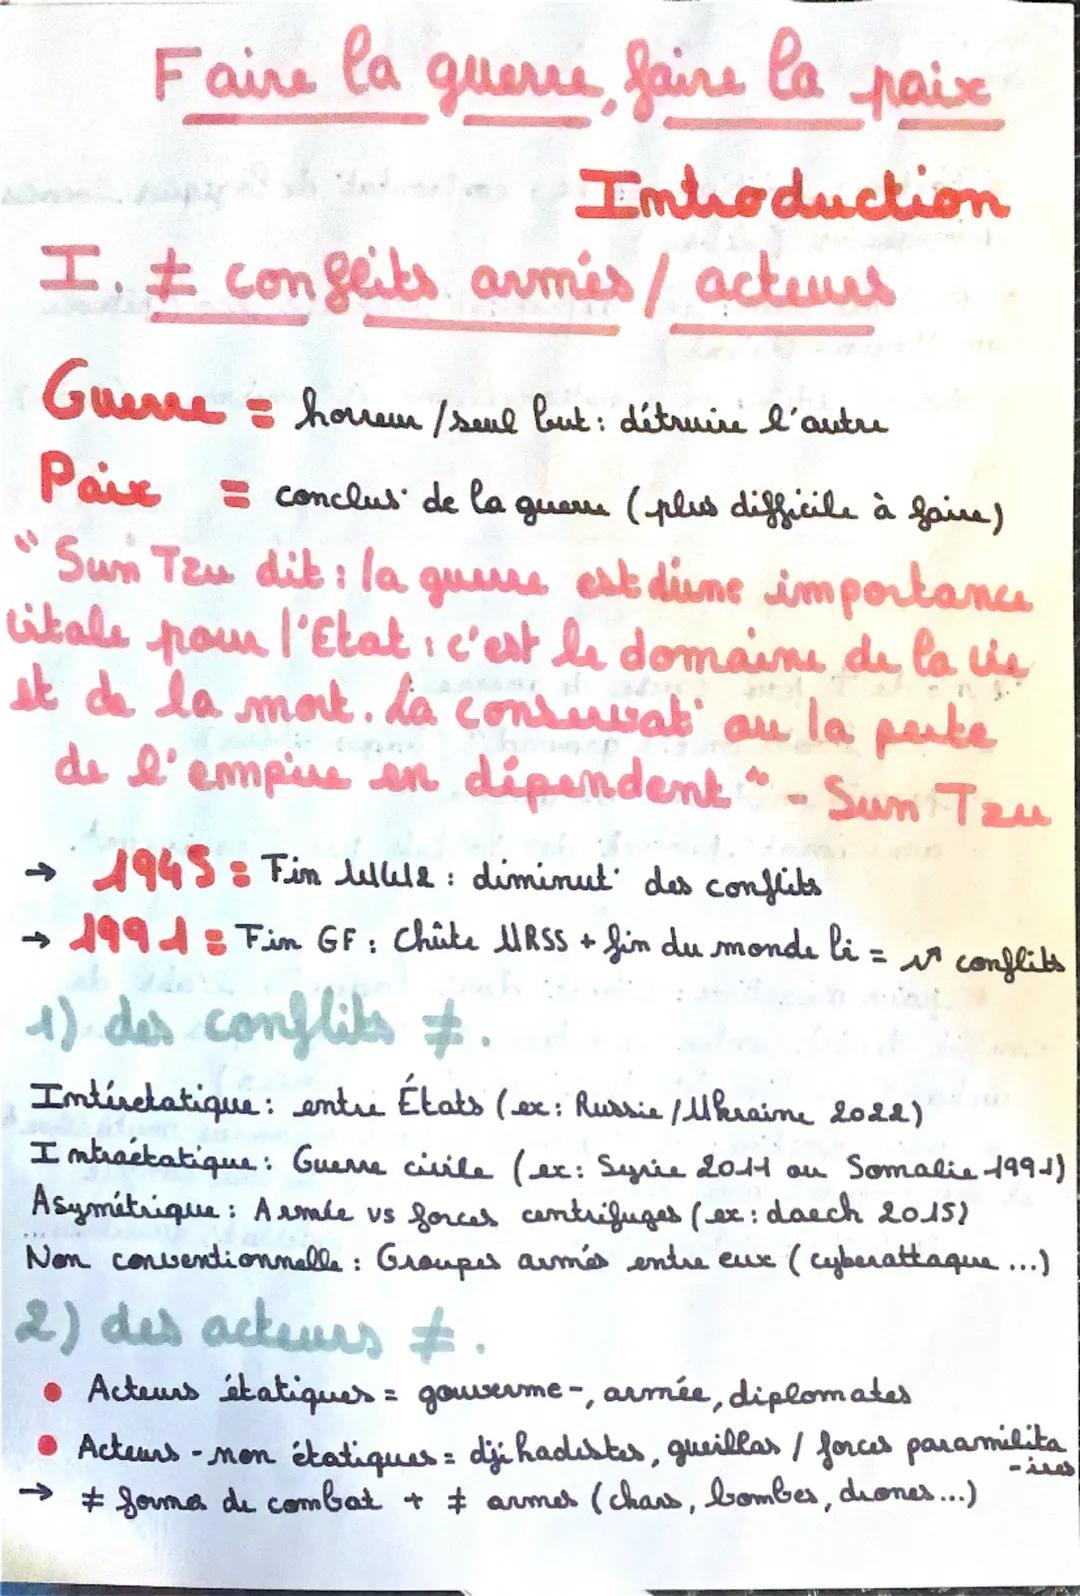 Faire la guerre, faire la paix
Introduction
I. ≠ conflits armés / acteurs
Guerre = horreur / seul but : détruire l'autre
Paix = conclus° de la guerre (plus difficile à faire)
" Sun Tzu dit : la guerre est d'une importance
vitale pour l'Etat : c'est le domaine de la vie
et de la mort. La conservat° ou la perte
de l'empire en dépendent " - Sun Tzu
→ 1945 = Fin WW2 : diminut° des conflits
→ 1991 = Fin GF : Chûte URSS + fin du monde bi = ↗ conflits
1) des conflits ≠.
Intéretatique : entre États (ex : Russie / Ukraine 2022)
Intraétatique : Guerre civile (ex : Syrie 2011 ou Somalie 1991)
Asymétrique : Armée vs forces centrifuges (ex : daech 2015)
Non conventionnelle : Groupes armés entre eux (cyberattaque ...)
2) des acteurs ≠.
• Acteurs étatiques = gouverne-, armée, diplomates
• Acteurs - non étatiques = djihadistes, gueillas / forces paramilita
-ires
→ ≠ formes de combat + ≠ armes (chars, bombes, drones ...)